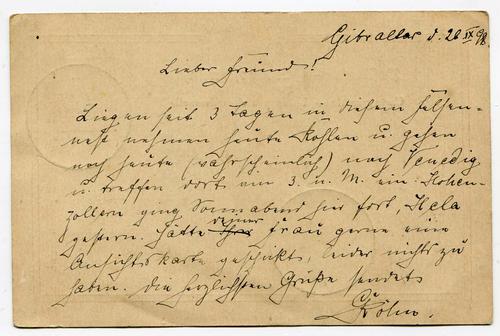 Gibraltar d. 26 IX 98.
Lieber Freund!
Liegen seit 3 Tagen in diesem Felsen-
nest nehmen heute Kohlen u. gehen
noch heute (wahrscheinlich) nach Venedig
u. treffen dort am 3. n. M. ein. Hohen-
zollern ging Sonnabend hier fort, Hela
gestern. Hätte deiner Frau gerne eine
Ansichtskarte geschickt, leider nichts zu
haben. Die herzlichsten Grüße sendet